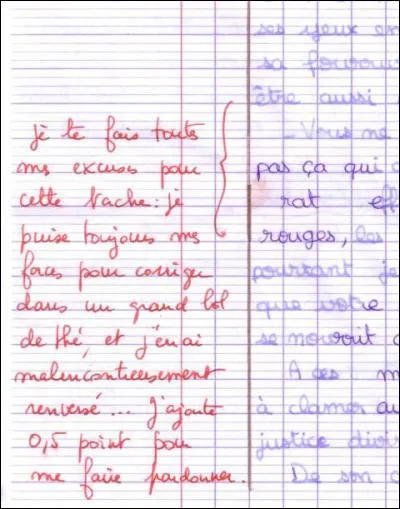 je te fais toutes
mes excuses pour
cette tache : je
puise toujours mes
forces pour corriger
dans un grand bol
de thé, et j'en ai
malencontreusement
renversé... J'ajoute
0,5 point pour
me faire pardonner.
ses yeux
sa
être aussi
- Vous ne
pas ça qui
rat
rouges, les
pourtant je
que votre
se nourrit
A ces
à clamer
justice
De son